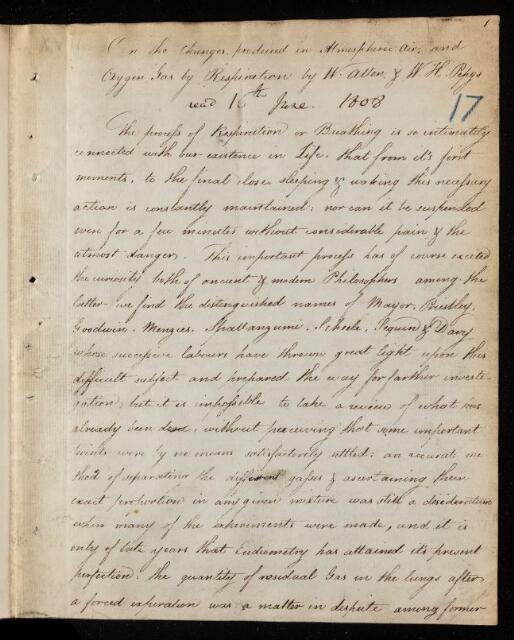 1
On the Changes produced in Atmospheric Air, and
Oxygen Gas by Respiration by W. Allen & W H. Pepys
read 16th June 1808
17
The process of Respiration or Breathing is so intimately
connected with our existence in Life, that from it's first
moments, to the final close sleeping & waking this necessary
action is constantly maintained; nor can it be suspended
even for a few minutes without considerable pain & the
utmost danger. This important process has of course excited
the curiosity both of ancient & modern Philosophers among the
latter we find the distinguished names of Mayow, Priestley,
Goodwin, Menzies, Spallanzani, Scheele, Seguin & Davy
whose successive labours have thrown great light upon this
difficult subject and prepared the way for farther investi-
gation, but it is impossible to take a review of what has
already been done, without perceiving that some important
points were by no means satisfactorily settled; an accurate me
thod of separating the different gasses & ascertaining their
exact proportion in any given mixture was still a desideratum
when many of the experiments were made, and it is
only of late years that Eudiometry has attained its present
perfection. The quantity of residual Gas in the lungs after
a forced expiration was a matter in dispute among former